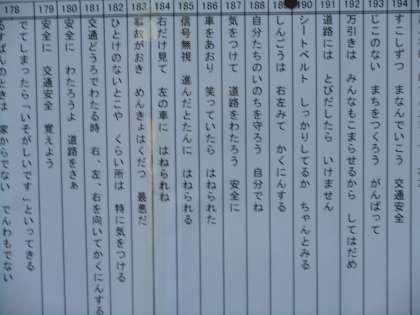 194 すこしずつ まなんでいこう 交通安全
193 じこのない まちをつくろう がんばって
192 万引きは みんなもこまらせるから してはだめ
191 道路には とびだしたら いけません
190 シートベルト しっかりしてるか ちゃんとみる
しんごうは 右左みて かくにんする
188 自分たちのいのちを守ろう 自分でね
187 気をつけて 道路をわたろう 安全に
186 車をあおり 笑っていたら はねられた
185 信号無視 進んだとたんに はねられる
184 右だけ見て 左の車に はねられね
183 事故がおき めんきょはくだつ 最悪だ
182 ひとけのないとこや くらい所は 特に気をつける
181 交通どうろでわたる時 右、左、右を向いてかくにんする
180 安全に わたろうよ 道路をさぁ
179 安全に 交通安全 覚えよう
178 でてしまったら「いそがしいです」といってきる
るすばんのときは 家からでない でんわもでない